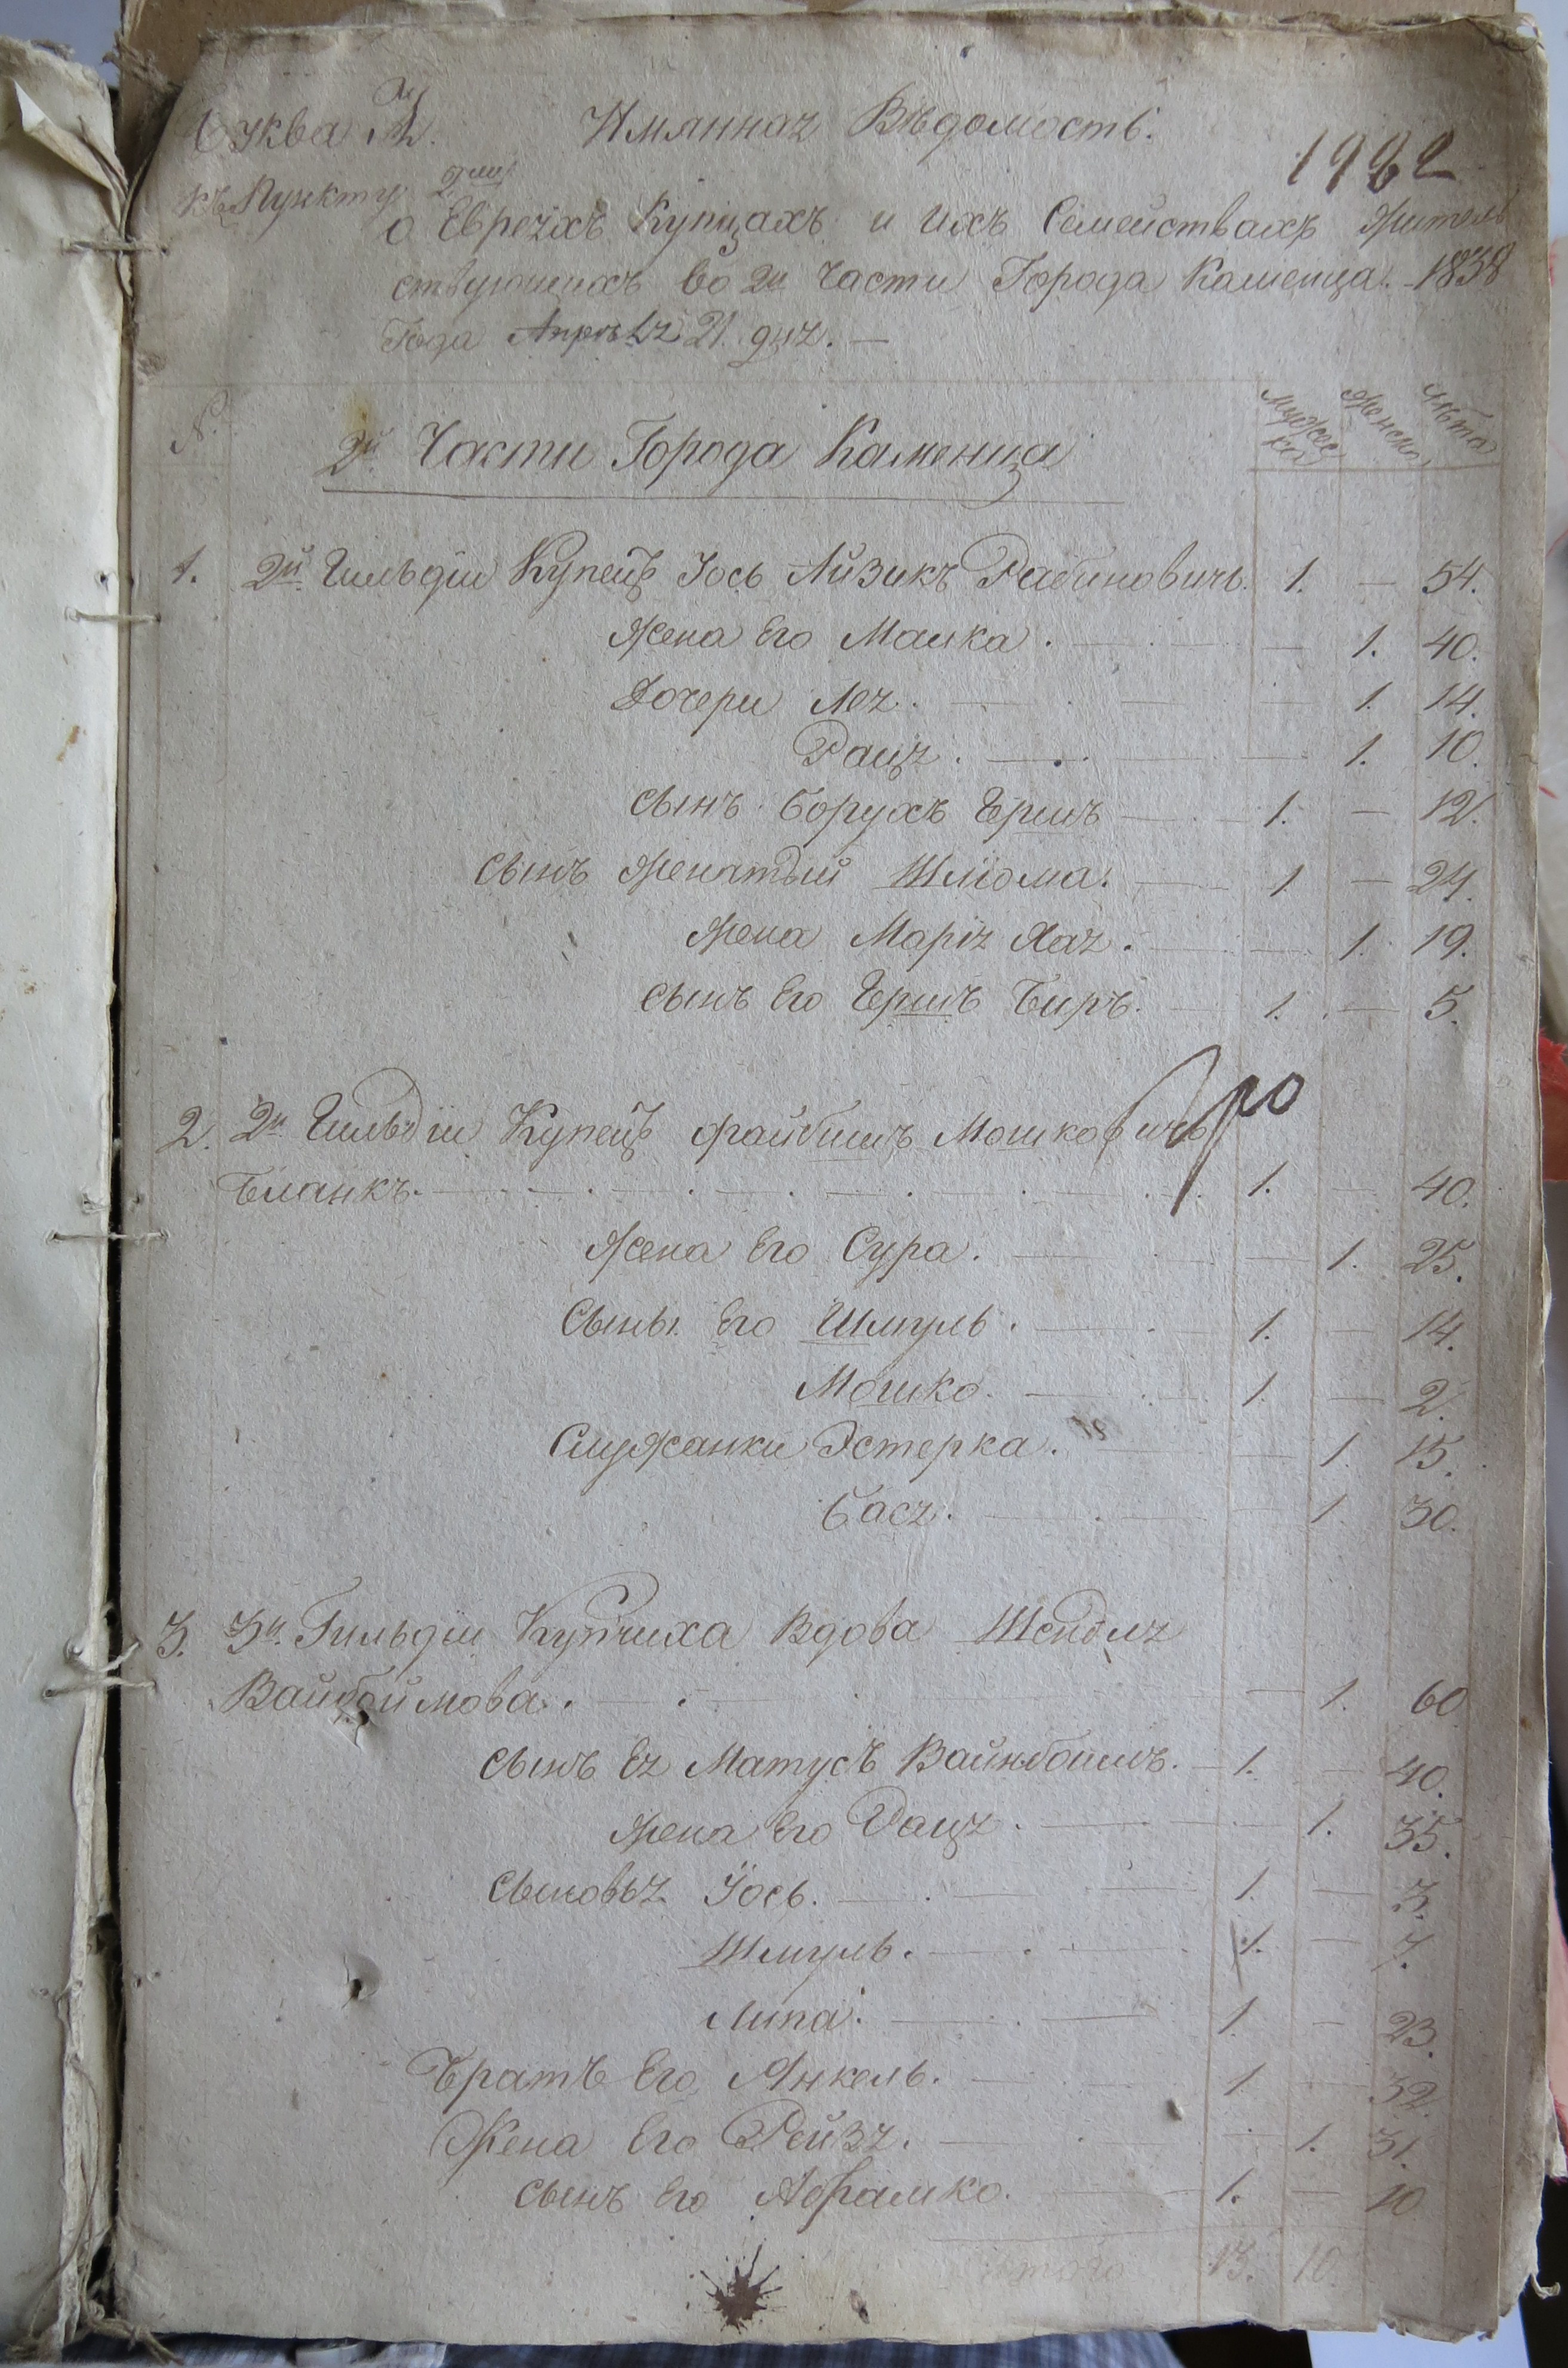 Буква А.
Имянная Вѣдомость.
1982
къ Пункту 2му
о Евреяхъ Купцахъ и ихъ Семействахъ жител
ствующихъ во 2й Части Города Каменца. 1838
Года Апрѣля 21 дня. —
N. Мужеска Женска Лѣта
2й Части Города Каменца
1. 2й Гильдіи Купецъ Іось Айзикъ Рабиновичъ. 1. — 54.
Жена Его Малка. — 1. 40.
Дочери Лея. — 1. 14.
Раця. — 1. 10.
сынъ Борухъ Гершъ — 1. — 12.
сынъ женатый Шліома. — 1 — 24.
жена Марія Хая. — 1. 19.
сынъ Его Гершъ Беръ. — 1. — 5.
2. 2й Гильдіи Купецъ Файбишъ Мошковичъ
Бланкъ. — 1. — 40.
Жена Его Сура. — 1. 25.
Сыны Его Шмуль. — 1. — 14.
Мошко. — 1. — 2.
Служанки Эстерка. — 1. 15.
Бася. — 1. 30.
3. 3й Гильдіи Купчиха Вдова Шендля
Вайнбоймова. — 1. 60
сынъ Ея Матусъ Вайнбоимъ. — 1. — 40.
жена Его Раця. — 1. 35.
сыновья Іось. — 1. — 3.
Шмуль. — 1. — 7.
Липа. — 1. — 23.
Братъ Его Янкель. — 1 — 32.
Жена Его Рейзя. — 1. 31.
сынъ Его Абрамко. — 1. — 10
Итого 13. 10.